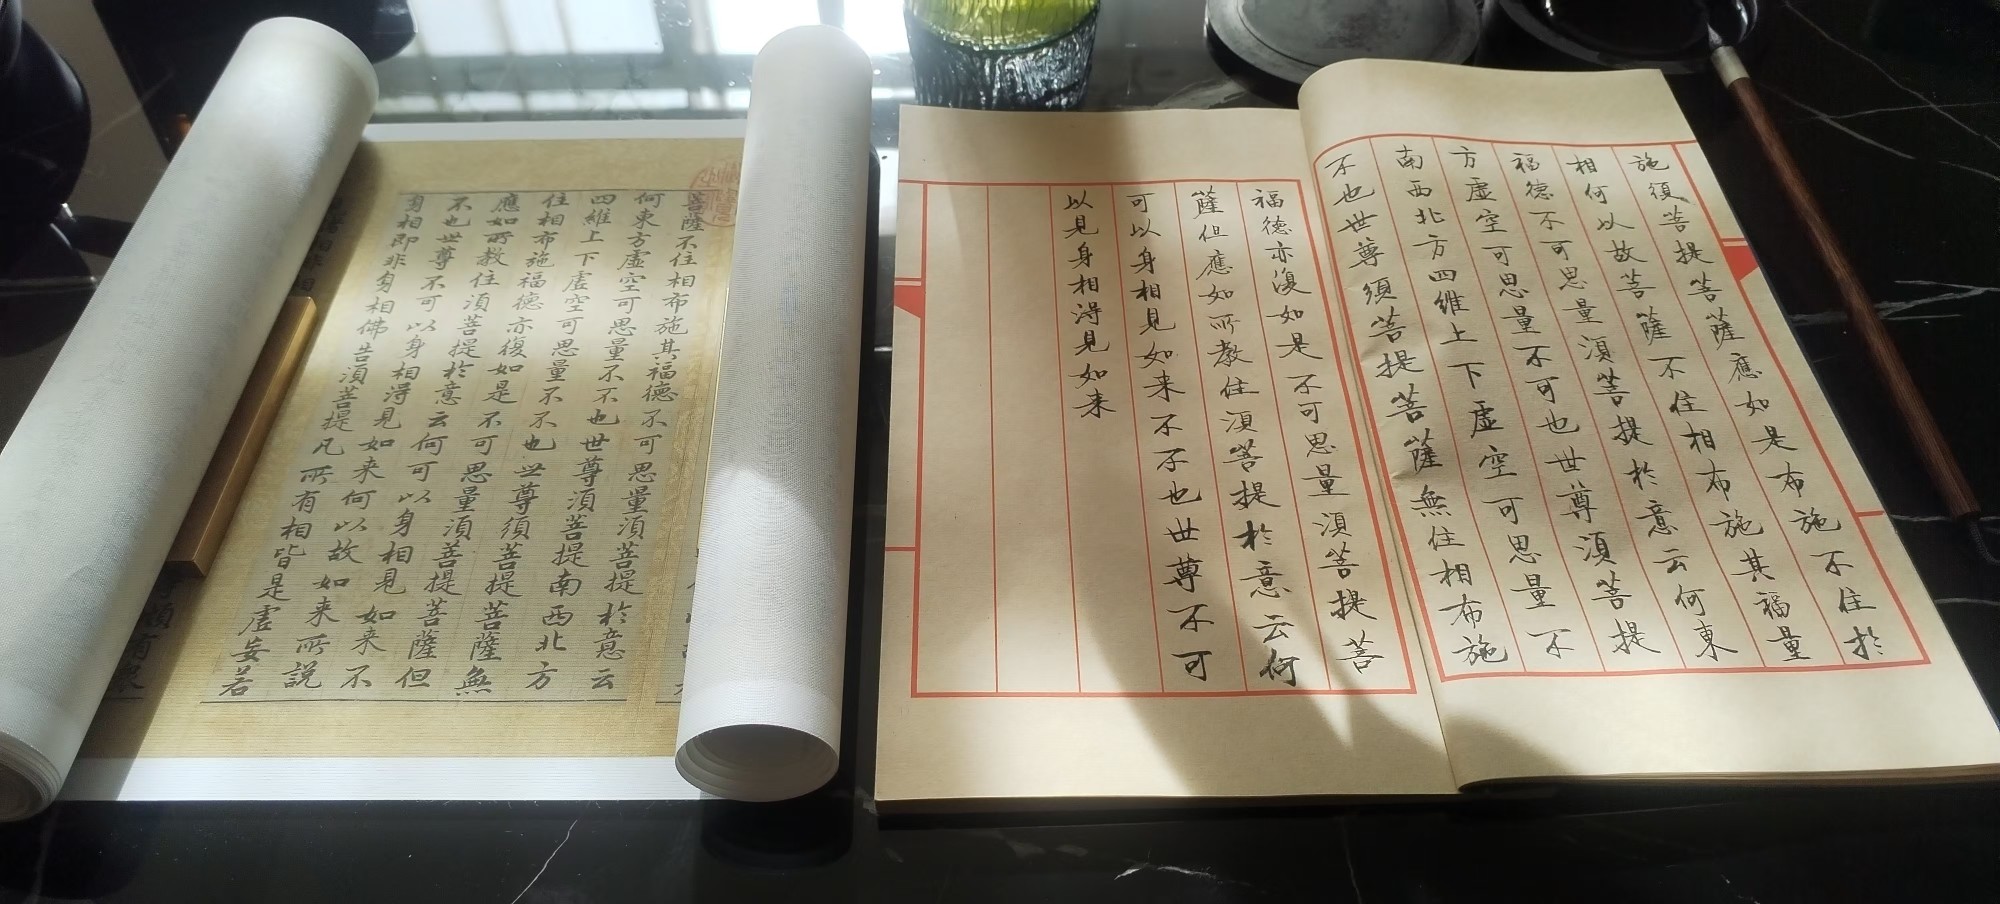 施須菩提菩薩應如是布施不住於
相何以故菩薩不住相布施其福量
福德不可思量須菩提於意云何東
方虛空可思量不可也世尊須菩提
南西北方四維上下虛空可思量不
不也世尊須菩提菩薩無住相布施
福德亦復如是不可思量須菩提菩
薩但應如所教住須菩提於意云何
可以身相見如来不不也世尊不可
以見身相得見如来
菩薩不住相布施其福德不可思量須菩提於意云
何東方虛空可思量不不也世尊須菩提南西北方
四維上下虛空可思量不不也世尊須菩提菩薩無
住相布施福德亦復如是不可思量須菩提菩薩但
應如所教住須菩提於意云何可以身相見如来不
不也世尊不可以身相得見如来何以故如来所說
身相即非身相佛告須菩提凡所有相皆是虛妄若